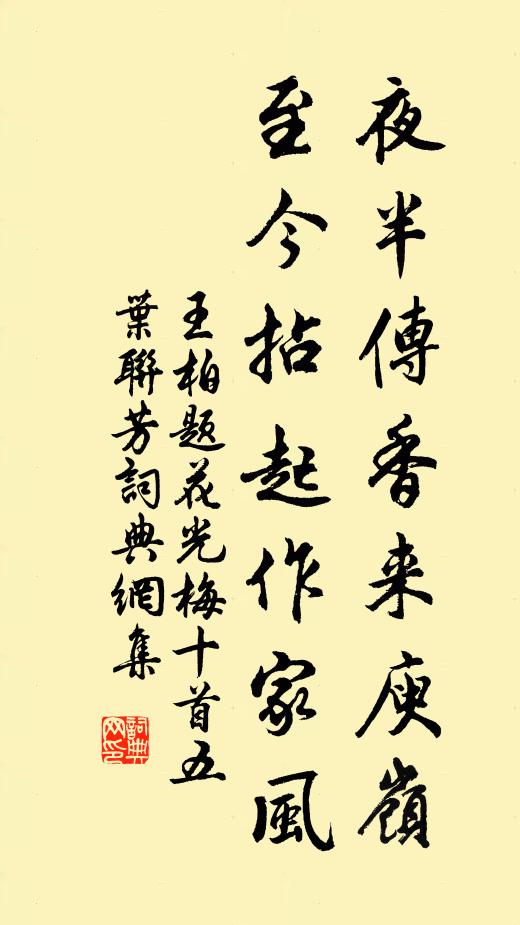 夜半傳香来庾嶺
至今拈起作家風
王柏題花光梅十首五
葉聯芳詞典網集
詞典網印